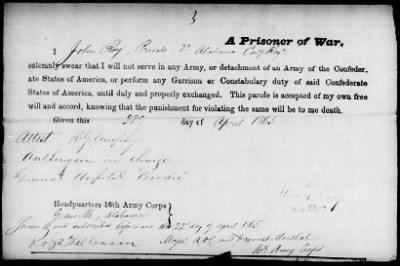 3
A Prisoner of War.
I John Roy, Private 2d Alabama Cav Regt
solemnly swear that I will not serve in any Army, or detachment of an Army of the Confeder-
ate States of America, or perform any Garrison or Constabulary duty of said Confederate
States of America, until duly and properly exchanged. This parole is accepted of my own free
will and accord, knowing that the punishment for violating the same will be to me death.
Given this 22d day of April 1865
Attest
in charge
Hospital
Headquarters 16th Army Corps
Greenville, Alabama
Sworn and subscribed before me this 22d day of April 1865
Major and Provost Marshal
Army Corps